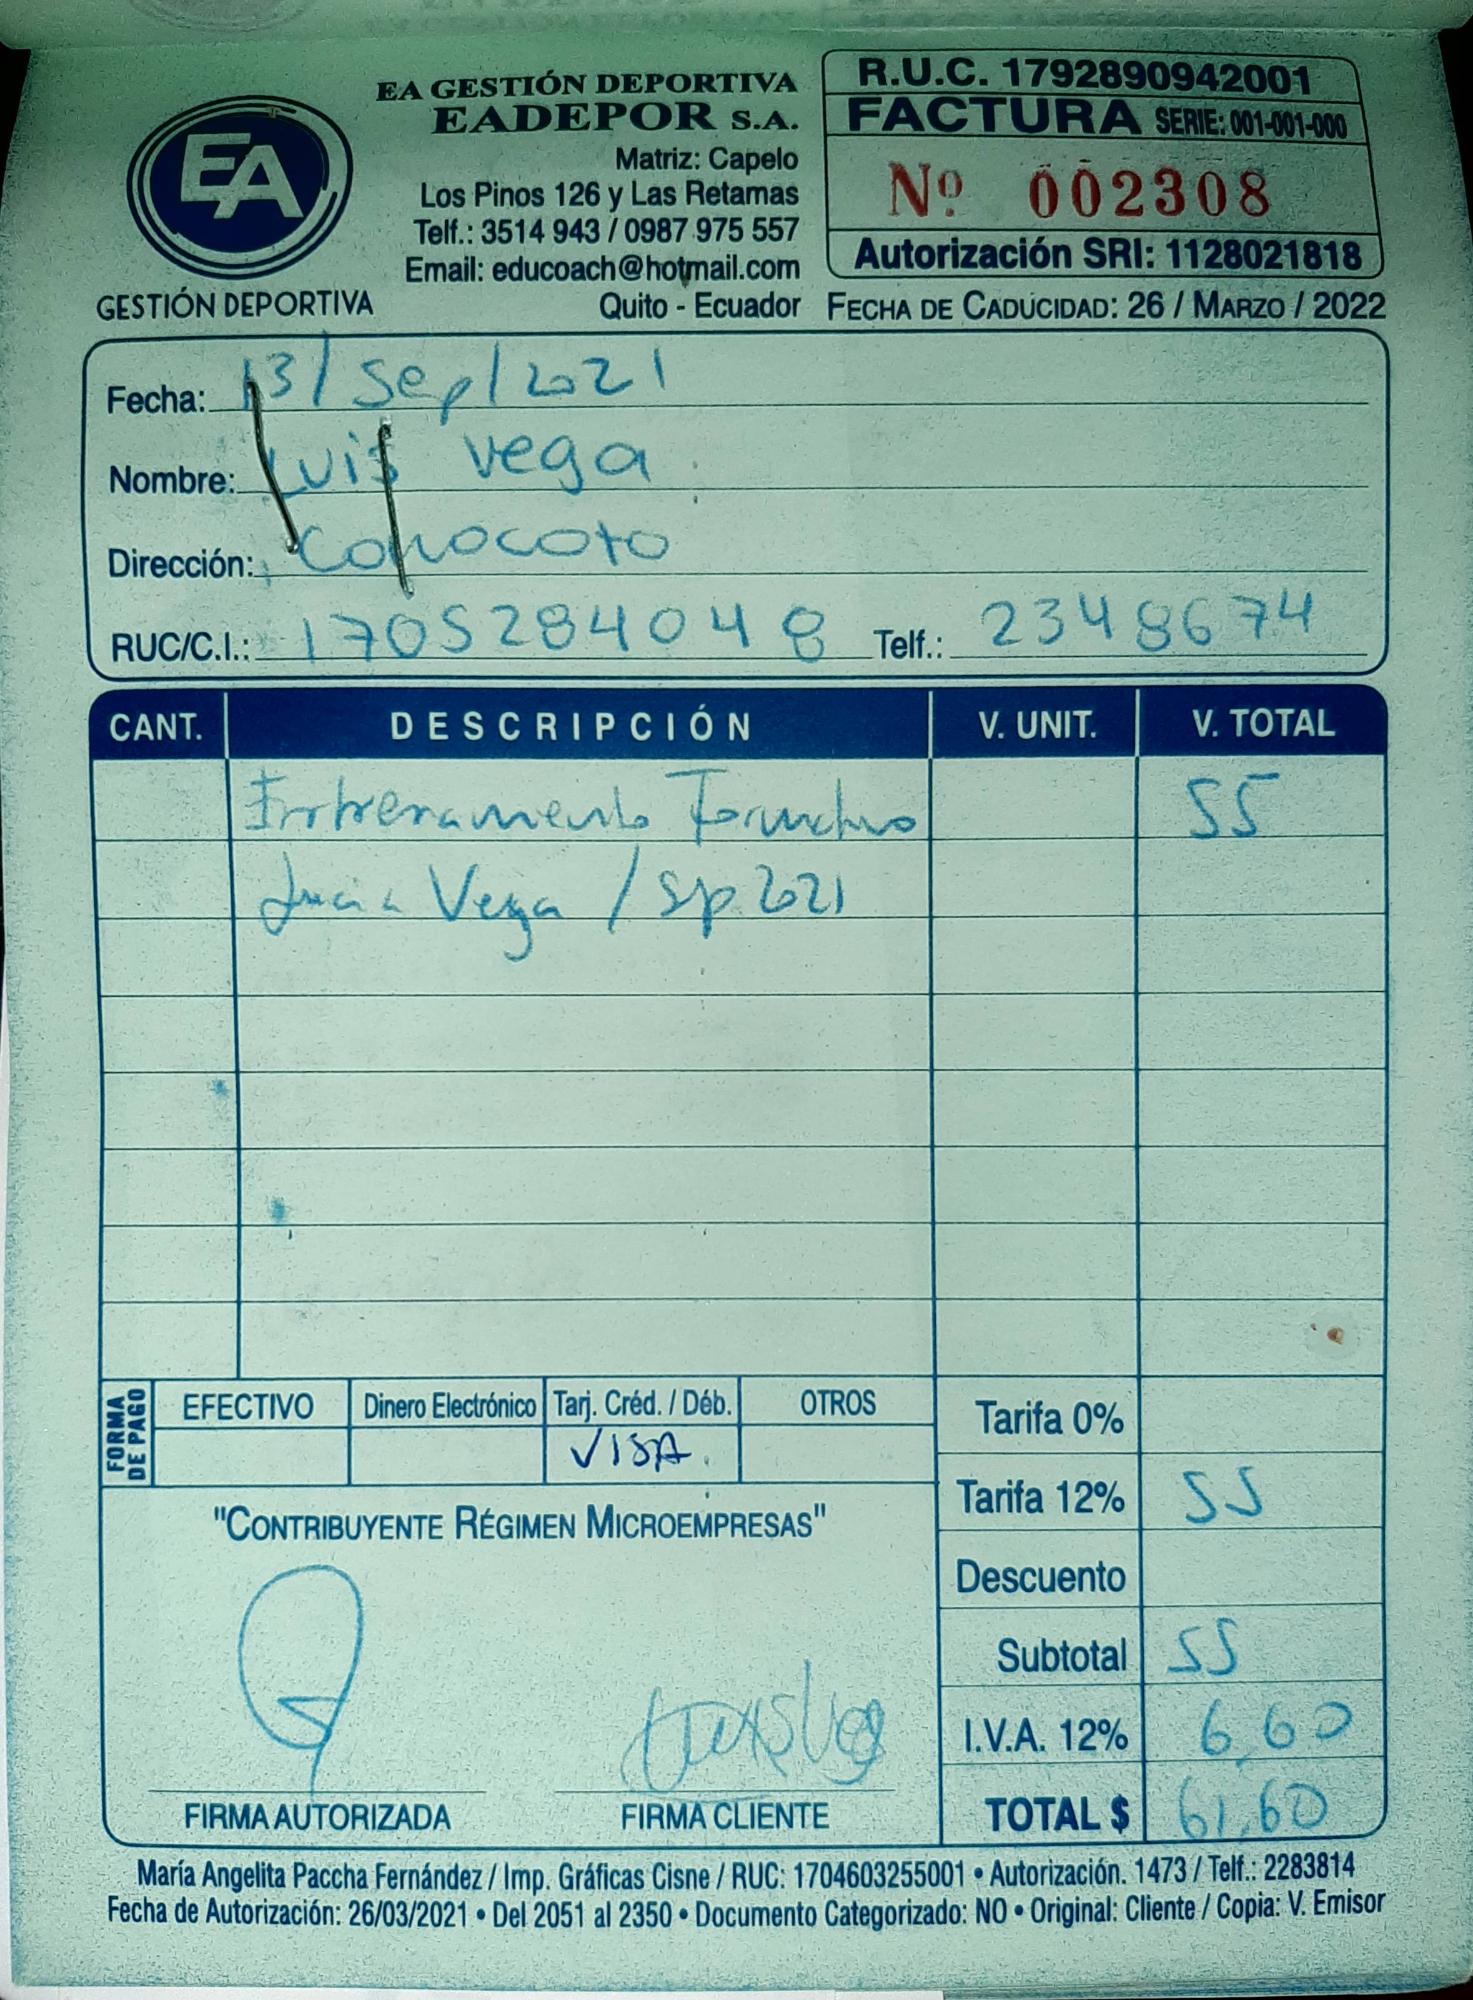 EA GESTIÓN DEPORTIVA
EADEPOR S.A.
Matriz: Capelo
Los Pinos 126 y Las Retamas
Telf.: 3514 943 / 0987 975 557
Email: educoach@hotmail.com
Quito - Ecuador
EA
GESTIÓN DEPORTIVA
R.U.C. 1792890942001
FACTURA SERIE: 001-001-000
Nº 002308
Autorización SRI: 1128021818
FECHA DE CADUCIDAD: 26 / MARZO / 2022
Fecha: 13/Sep/2021
Nombre: Luis Vega
Dirección: Conocoto
RUC/C.I.: 1705284048 Telf.: 2348674
CANT. DESCRIPCIÓN V. UNIT. V. TOTAL
Entrenamiento Formativo 55
Lucia Vega / Sp 2021
FORMA DE PAGO
EFECTIVO Dinero Electrónico Tarj. Créd. / Déb. OTROS
VISA.
Tarifa 0%
Tarifa 12% 55
Descuento
Subtotal 55
I.V.A. 12% 6,60
TOTAL $ 61,60
"CONTRIBUYENTE RÉGIMEN MICROEMPRESAS"
FIRMA AUTORIZADA FIRMA CLIENTE
María Angelita Paccha Fernández / Imp. Gráficas Cisne / RUC: 1704603255001 • Autorización. 1473 / Telf.: 2283814
Fecha de Autorización: 26/03/2021 • Del 2051 al 2350 • Documento Categorizado: NO • Original: Cliente / Copia: V. Emisor